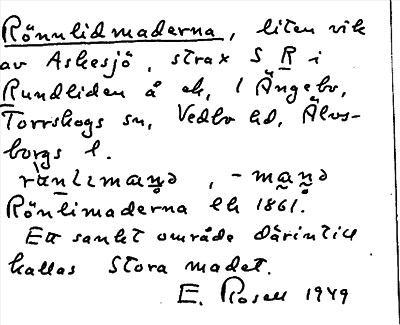 Rönnlidmaderna, liten vik
av Askesjö, strax S R i
Rundliden å ek, l Ängebo,
Torrskogs sn, Vedbo hd, Älvs-
borgs l.
Rönlimaderna lk 1861.
Ett sankt område därintill
kallas Stora madet.
E. Rosell 1949